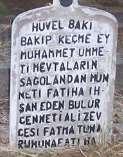 HUVEL BAKİ
BAKIP KEÇME EY
MUHAMMET ÜMME
Tİ MEVTALARIN
SAĞOLANDAN MÜN
NETİ FATİHA İH
SAN EDEN BULUR
CENNETİ ALİ ZEV
CESİ FATMA TUNA
RUHUNA FATİHA